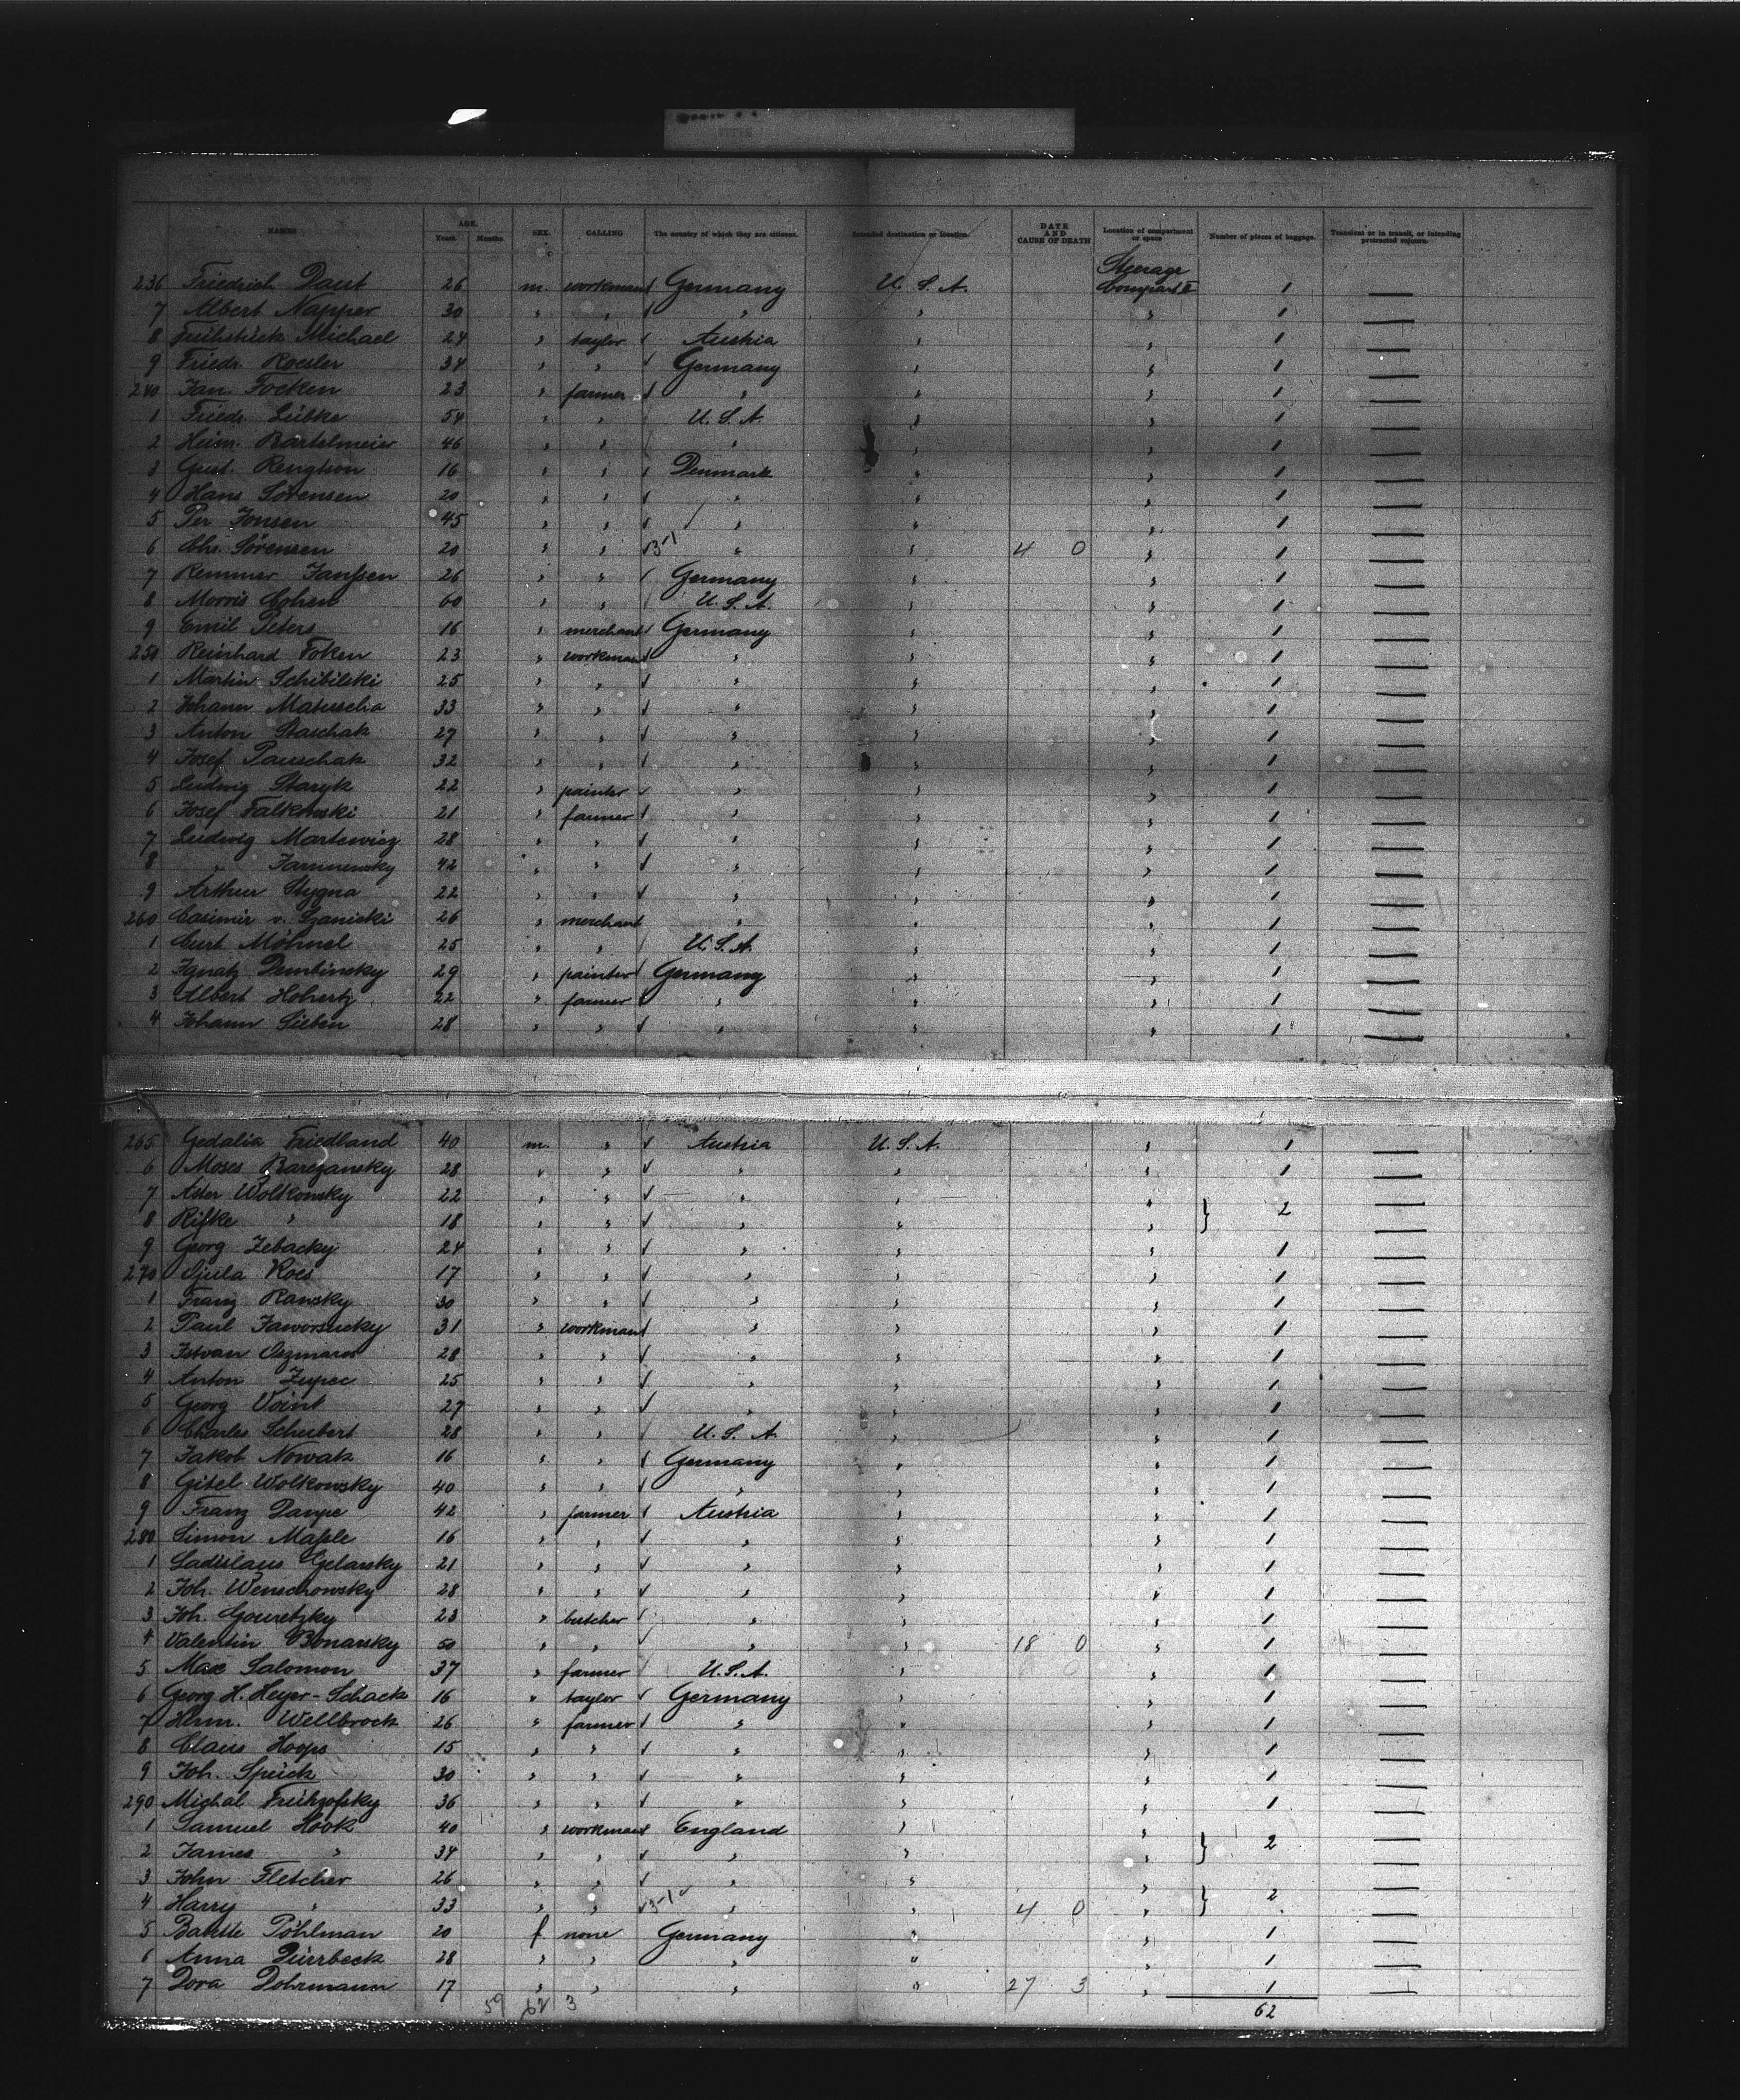 NAMES AGE. Years. Months. SEX. CALLING The country of which they are citizens. Intended destination or location. DATE AND CAUSE OF DEATH Location of compartment or space Number of pieces of baggage. Transient or in transit, or intending protracted sojourn.
236 Friedrich Daut 26 m. workman Germany U. S. A. Steerage Compart II 1 —
7 Albert Napper 30 " " " " " 1 —
8 Frühstück Michael 24 " taylor Austria " " 1 —
9 Friedr. Roesler 34 " " Germany " " 1 —
240 Jan. Focken 23 " farmer " " " 1 —
1 Friedr. Lübke 54 " " U. S. A. " " 1 —
2 Heinr. Bartelmeier 46 " " " " " 1 —
3 Gust. Rengtson 16 " " Denmark " " 1 —
4 Hans Sörensen 20 " " " " " 1 —
5 Per Jonsen 45 " " " " " 1 —
6 Chr. Sörensen 20 " " 3-1 " " 4 0 " 1 —
7 Remmer Janssen 26 " " Germany " " 1 —
8 Morris Cohen 60 " " U. S. A. " " 1 —
9 Emil Peters 16 " merchant Germany " " 1 —
250 Reinhard Foken 23 " workman " " " 1 —
1 Martin Schibilski 25 " " " " " 1 —
2 Johann Matuscha 33 " " " " " 1 —
3 Anton Staschak 27 " " " " " 1 —
4 Josef Pauschak 32 " " " " " 1 —
5 Ludwig Staryk 22 " painter " " " 1 —
6 Josef Falkowski 21 " farmer " " " 1 —
7 Ludwig Martewicz 28 " " " " " 1 —
8 " Jamunensky 42 " " " " " 1 —
9 Arthur Stygna 22 " " " " " 1 —
260 Casimir v. Ganicki 26 " merchant " " " 1 —
1 Curt Möhnel 25 " " U. S. A. " " 1 —
2 Ignatz Dembinsky 29 " painter Germany " " 1 —
3 Albert Hohertz 22 " farmer " " " 1 —
4 Johann Sieben 28 " " " " " 1 —
265 Gedalia Friedland 40 m. " Austria U. S. A. " 1 —
6 Moses Barezansky 28 " " " " " 1 —
7 Aster Wolkowsky 22 " " " " " } 2 —
8 Rifke " 18 " " " " " —
9 Georg Zebacky 24 " " " " " 1 —
270 Gjula Kocs 17 " " " " " 1 —
1 Franz Ransky 30 " " " " " 1 —
2 Paul Jaworsucky 31 " workman " " " 1 —
3 Istvan Oszmaros 28 " " " " " 1 —
4 Anton Zupec 25 " " " " " 1 —
5 Georg Voint 27 " " " " " 1 —
6 Charles Schubert 28 " " U. S. A. " " 1 —
7 Jakob Nowak 16 " " Germany " " 1 —
8 Gitel Wolkowsky 40 " " " " " 1 —
9 Franz Dampe 42 " farmer Austria " " 1 —
280 Simon Maple 16 " " " " " 1 —
1 Ladislaus Gelarsky 21 " " " " " 1 —
2 Joh. Wenschowsky 28 " " " " " 1 —
3 Joh. Gouretzky 23 " butcher " " " 1 —
4 Valentin Bonarsky 50 " " " " 18 0 " 1 —
5 Max Salomon 37 " farmer U. S. A. " " 1 —
6 Georg H. Heyer-Schack 16 " taylor Germany " " 1 —
7 Herm. Wellbrock 26 " farmer " " " 1 —
8 Claus Hoops 15 " " " " " 1 —
9 Joh. Speick 30 " " " " " 1 —
290 Michál Frühzofsky 36 " " " " " 1 —
1 Samuel Hook 40 " workman England " " } 2 —
2 James " 34 " " " " " —
3 John Fletcher 26 " " " " " } 2 —
4 Harry " 33 " " 3-1 " " 4 0 " —
5 Babette Pöhlman 20 f none Germany " " 1 —
6 Anna Dürrbeck 28 " " " " " 1 —
7 Dora Dohrmann 17 " " " " 27 3 " 1 —
59 62 3 62